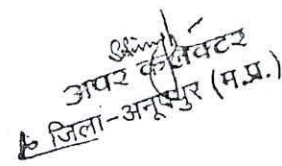 अपर कलेक्टर
जिला-अनूपपुर (म.प्र.)